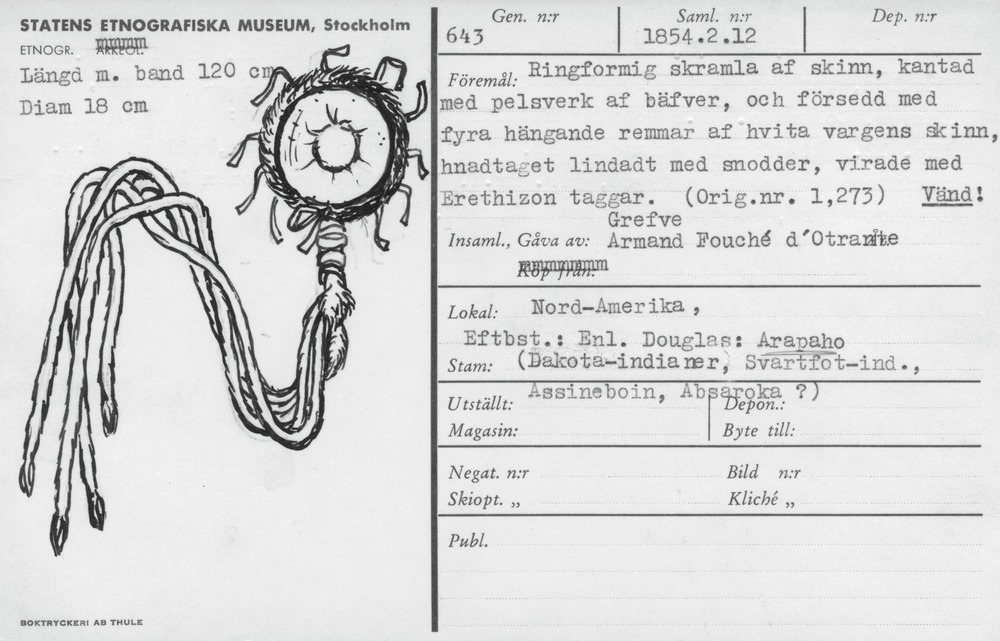 STATENS ETNOGRAFISKA MUSEUM, Stockholm
ETNOGR. ARKEOL.
Längd m. band 120 cm
Diam 18 cm
Gen. n:r
643
Saml. n:r
1854.2.12
Dep. n:r
Föremål: Ringformig skramla af skinn, kantad
med pelsverk af bäfver, och försedd med
fyra hängande remmar af hvita vargens skinn,
hnadtaget lindadt med snodder, virade med
Erethizon taggar. (Orig.nr. 1,273) Vänd!
Grefve
Insaml., Gåva av: Armand Fouché d'Otrante
Köp från:
Lokal: Nord-Amerika,
Eftbst.: Enl. Douglas: Arapaho
Stam: (Dakota-indianer, Svartfot-ind.,
Assineboin, Absaroka ?)
Utställt:
Depon.:
Magasin:
Byte till:
Negat. n:r
Bild n:r
Skiopt. „
Kliché „
Publ.
BOKTRYCKERI AB THULE